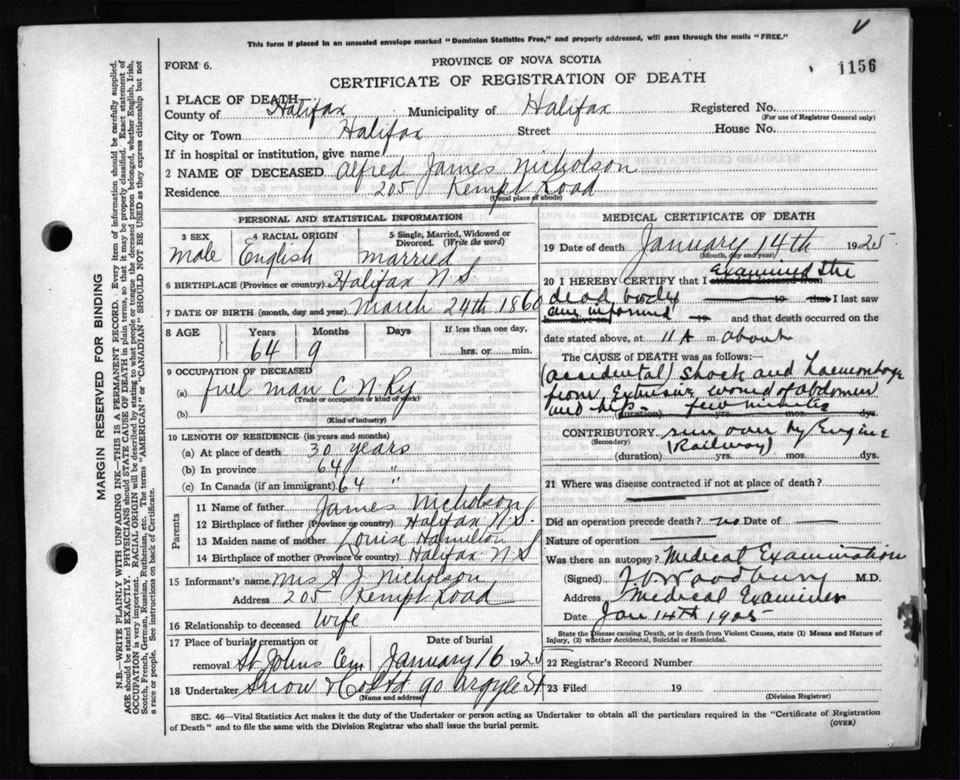 This form if placed in an unsealed envelope marked "Dominion Statistics Free," and properly addressed, will pass through the mails "FREE."
V
FORM 6.
PROVINCE OF NOVA SCOTIA
1156
CERTIFICATE OF REGISTRATION OF DEATH
1 PLACE OF DEATH
County of Halifax Municipality of Halifax Registered No.
(For use of Registrar General only)
City or Town Halifax Street House No.
If in hospital or institution, give name
2 NAME OF DECEASED Alfred James Nicholson
Residence 205 Kempt Road
(Usual place of abode)
PERSONAL AND STATISTICAL INFORMATION
3 SEX 4 RACIAL ORIGIN 5 Single, Married, Widowed or Divorced. (Write the word)
Male English married
6 BIRTHPLACE (Province or country) Halifax N.S.
7 DATE OF BIRTH (month, day and year) March 24th 1860
8 AGE Years Months Days If less than one day,
64 9 hrs. or min.
9 OCCUPATION OF DECEASED
(a) fuel man C N Ry
(Trade or occupation or kind of work)
(b)
(Kind of industry)
10 LENGTH OF RESIDENCE (in years and months)
(a) At place of death 30 years
(b) In province 64 "
(c) In Canada (if an immigrant) 64 "
Parents
11 Name of father James Nicholson
12 Birthplace of father (Province or country) Halifax N.S.
13 Maiden name of mother Louise Hamilton
14 Birthplace of mother (Province or country) Halifax N S
15 Informant's name Mrs A J Nicholson
Address 205 Kempt Road
16 Relationship to deceased Wife
17 Place of burial, cremation or removal St Johns Cem Date of burial January 16 1925
18 Undertaker Snow & Co Ltd 90 Argyle St
(Name and address)
MEDICAL CERTIFICATE OF DEATH
19 Date of death January 14th 1925
(Month, day and year)
20 I HEREBY CERTIFY that I attended deceased from Examined the
dead body 19 that I last saw
h alive on and informed 19 and that death occurred on
date stated above, at 11 A m. about
The CAUSE OF DEATH was as follows:
(accidental) Shock and Haemorrhage
from Extensive wound of abdomen
and hip. few minutes
(duration) yrs. mos. dys.
CONTRIBUTORY run over by Engine
(Secondary) (Railway)
(duration) yrs. mos. dys.
21 Where was disease contracted if not at place of death?
Did an operation precede death? no Date of
Nature of operation
Was there an autopsy? Medical Examination
(Signed) Woodbury M.D.
Address Medical Examiner
Date Jan 14th 1925
State the Disease causing Death, or in death from Violent Causes, state (1) Means and Nature of Injury, (2) whether Accidental, Suicidal or Homicidal.
22 Registrar's Record Number
23 Filed 19
(Division Registrar)
SEC. 46—Vital Statistics Act makes it the duty of the Undertaker or person acting as Undertaker to obtain all the particulars required in the "Certificate of Registration
of Death" and to file the same with the Division Registrar who shall issue the burial permit. (OVER)
MARGIN RESERVED FOR BINDING
N.B.—WRITE PLAINLY WITH UNFADING INK—THIS IS A PERMANENT RECORD. Every item of information should be carefully supplied.
AGE should be stated EXACTLY. PHYSICIANS should STATE CAUSE OF DEATH in plain terms, so that it may be properly classified. Exact statement of
OCCUPATION is very important. RACIAL ORIGIN will be described by stating to what people or tongue the deceased person belonged, whether English, Irish,
Scotch, French, German, Russian, Ruthenian, etc. The terms "AMERICAN" or "CANADIAN" SHOULD NOT BE USED as they express citizenship but not
a race or people. See instructions on back of Certificate.